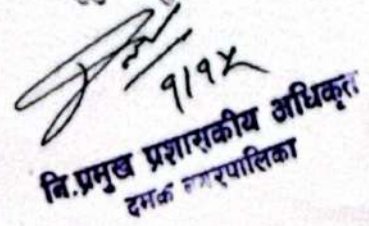 ९/१५
नि.प्रमुख प्रशासकीय अधिकृत
दमक नगरपालिका